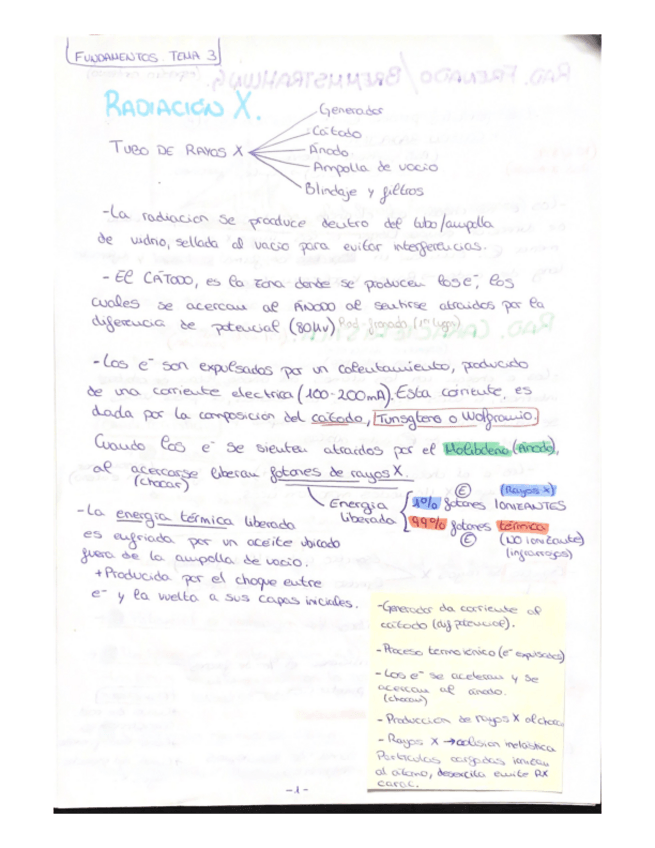 FUNDAMENTOS. TEMA 3
RADIACIÓN X.
TUBO DE RAYOS X
Generador
Cátodo
Ánodo
Ampolla de vacío
Blindaje y filtros
-La radiacion se produce dentro del tubo/ampolla
de vidrio, sellada al vacio para evitar interferencias.
- El CÁTODO, es la zona donde se producen los e⁻, los
cuales se acercan al ÁNODO al sentirse atraidos por la
diferencia de potencial (80kv) Rad. frenado (1er lugar)
-Los e⁻ son expulsados por un calentamiento, producido
de una corriente electrica (100-200mA). Esta corriente, es
dada por la composición del catodo, Tunsgteno o Wolframio.
Cuando los e⁻ se sienten atraidos por el Molibdeno (Ánodo),
al acercarse liberan fotones de rayos X.
(chocar)
Energia
liberada
1% fotones IONIZANTES
(Rayos X)
99% fotones térmica
(NO ionizante)
(infrarrojos)
-La energía térmica liberada
es enfriada por un aceite ubicado
fuera de la ampolla de vacio.
+Producida por el choque entre
e⁻ y la vuelta a sus capas iniciales.
-Generador da corriente al
cátodo (dif potencial).
-Proceso termoiónico (e⁻ expulsados)
-Los e⁻ se aceleran y se
acercan al ánodo.
(chocan)
- Produccion de rayos X al chocar
- Rayos X → colision inelástica
Partículas cargadas ionizan
al átomo, desexcita emite RX
carac.
-1-